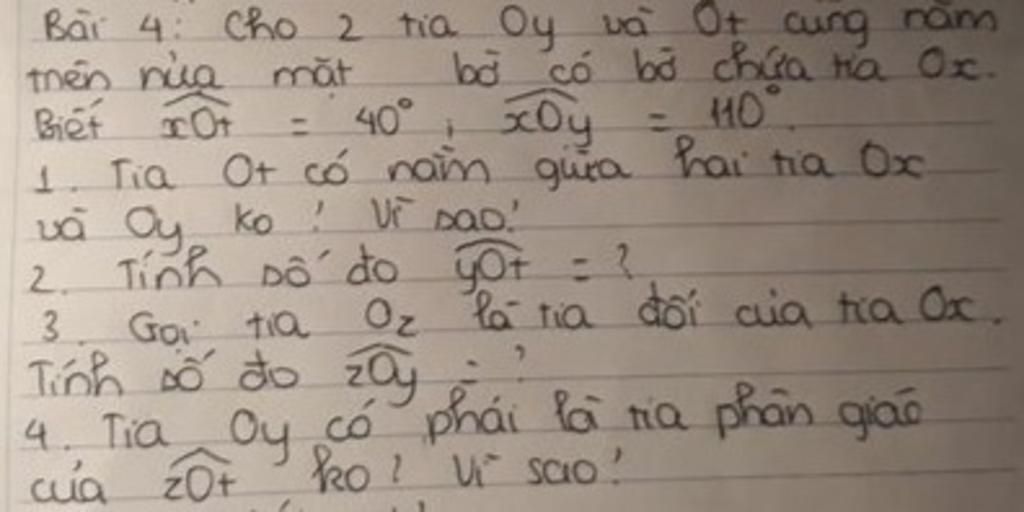 Bài 4: Cho 2 tia Oy và Ot cùng nằm
trên nửa mặt bờ có bờ chứa tia Ox.
Biết xOt = 40°, xOy = 110°.
1. Tia Ot có nằm giữa hai tia Ox
và Oy ko ? Vì sao?
2. Tính số đo yOt = ?
3. Gọi tia Oz là tia đối của tia Ox.
Tính số đo zOy = ?
4. Tia Oy có phải là tia phân giác
của zOt ko? Vì sao?